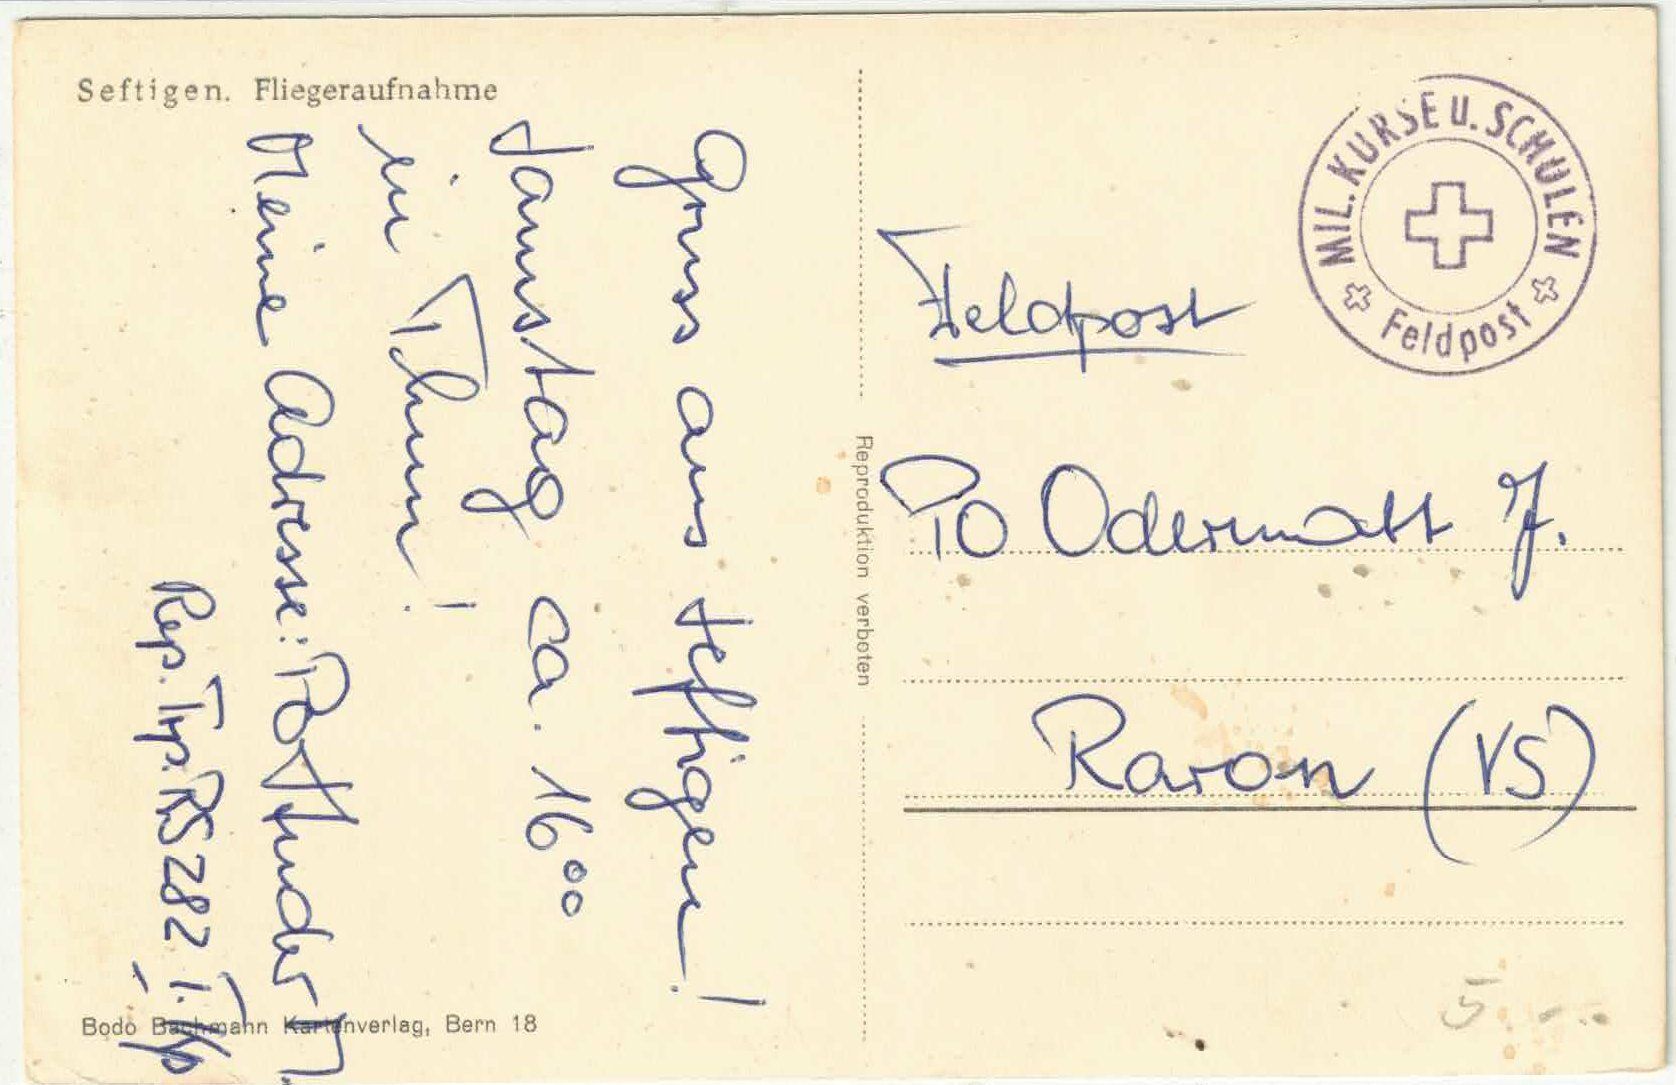 Seftigen. Fliegeraufnahme
Gruss aus Seftigen!
Samstag ca. 16⁰⁰
in Thun!
Meine Adresse: PO
Rep. Trp. RS 282 I. Kp
Bodo Bachmann Kartenverlag, Bern 18
Reproduktion verboten
MIL. KURSE U. SCHULEN
Feldpost
Feldpost
PO Odermatt J.
Raron (VS)
5.-